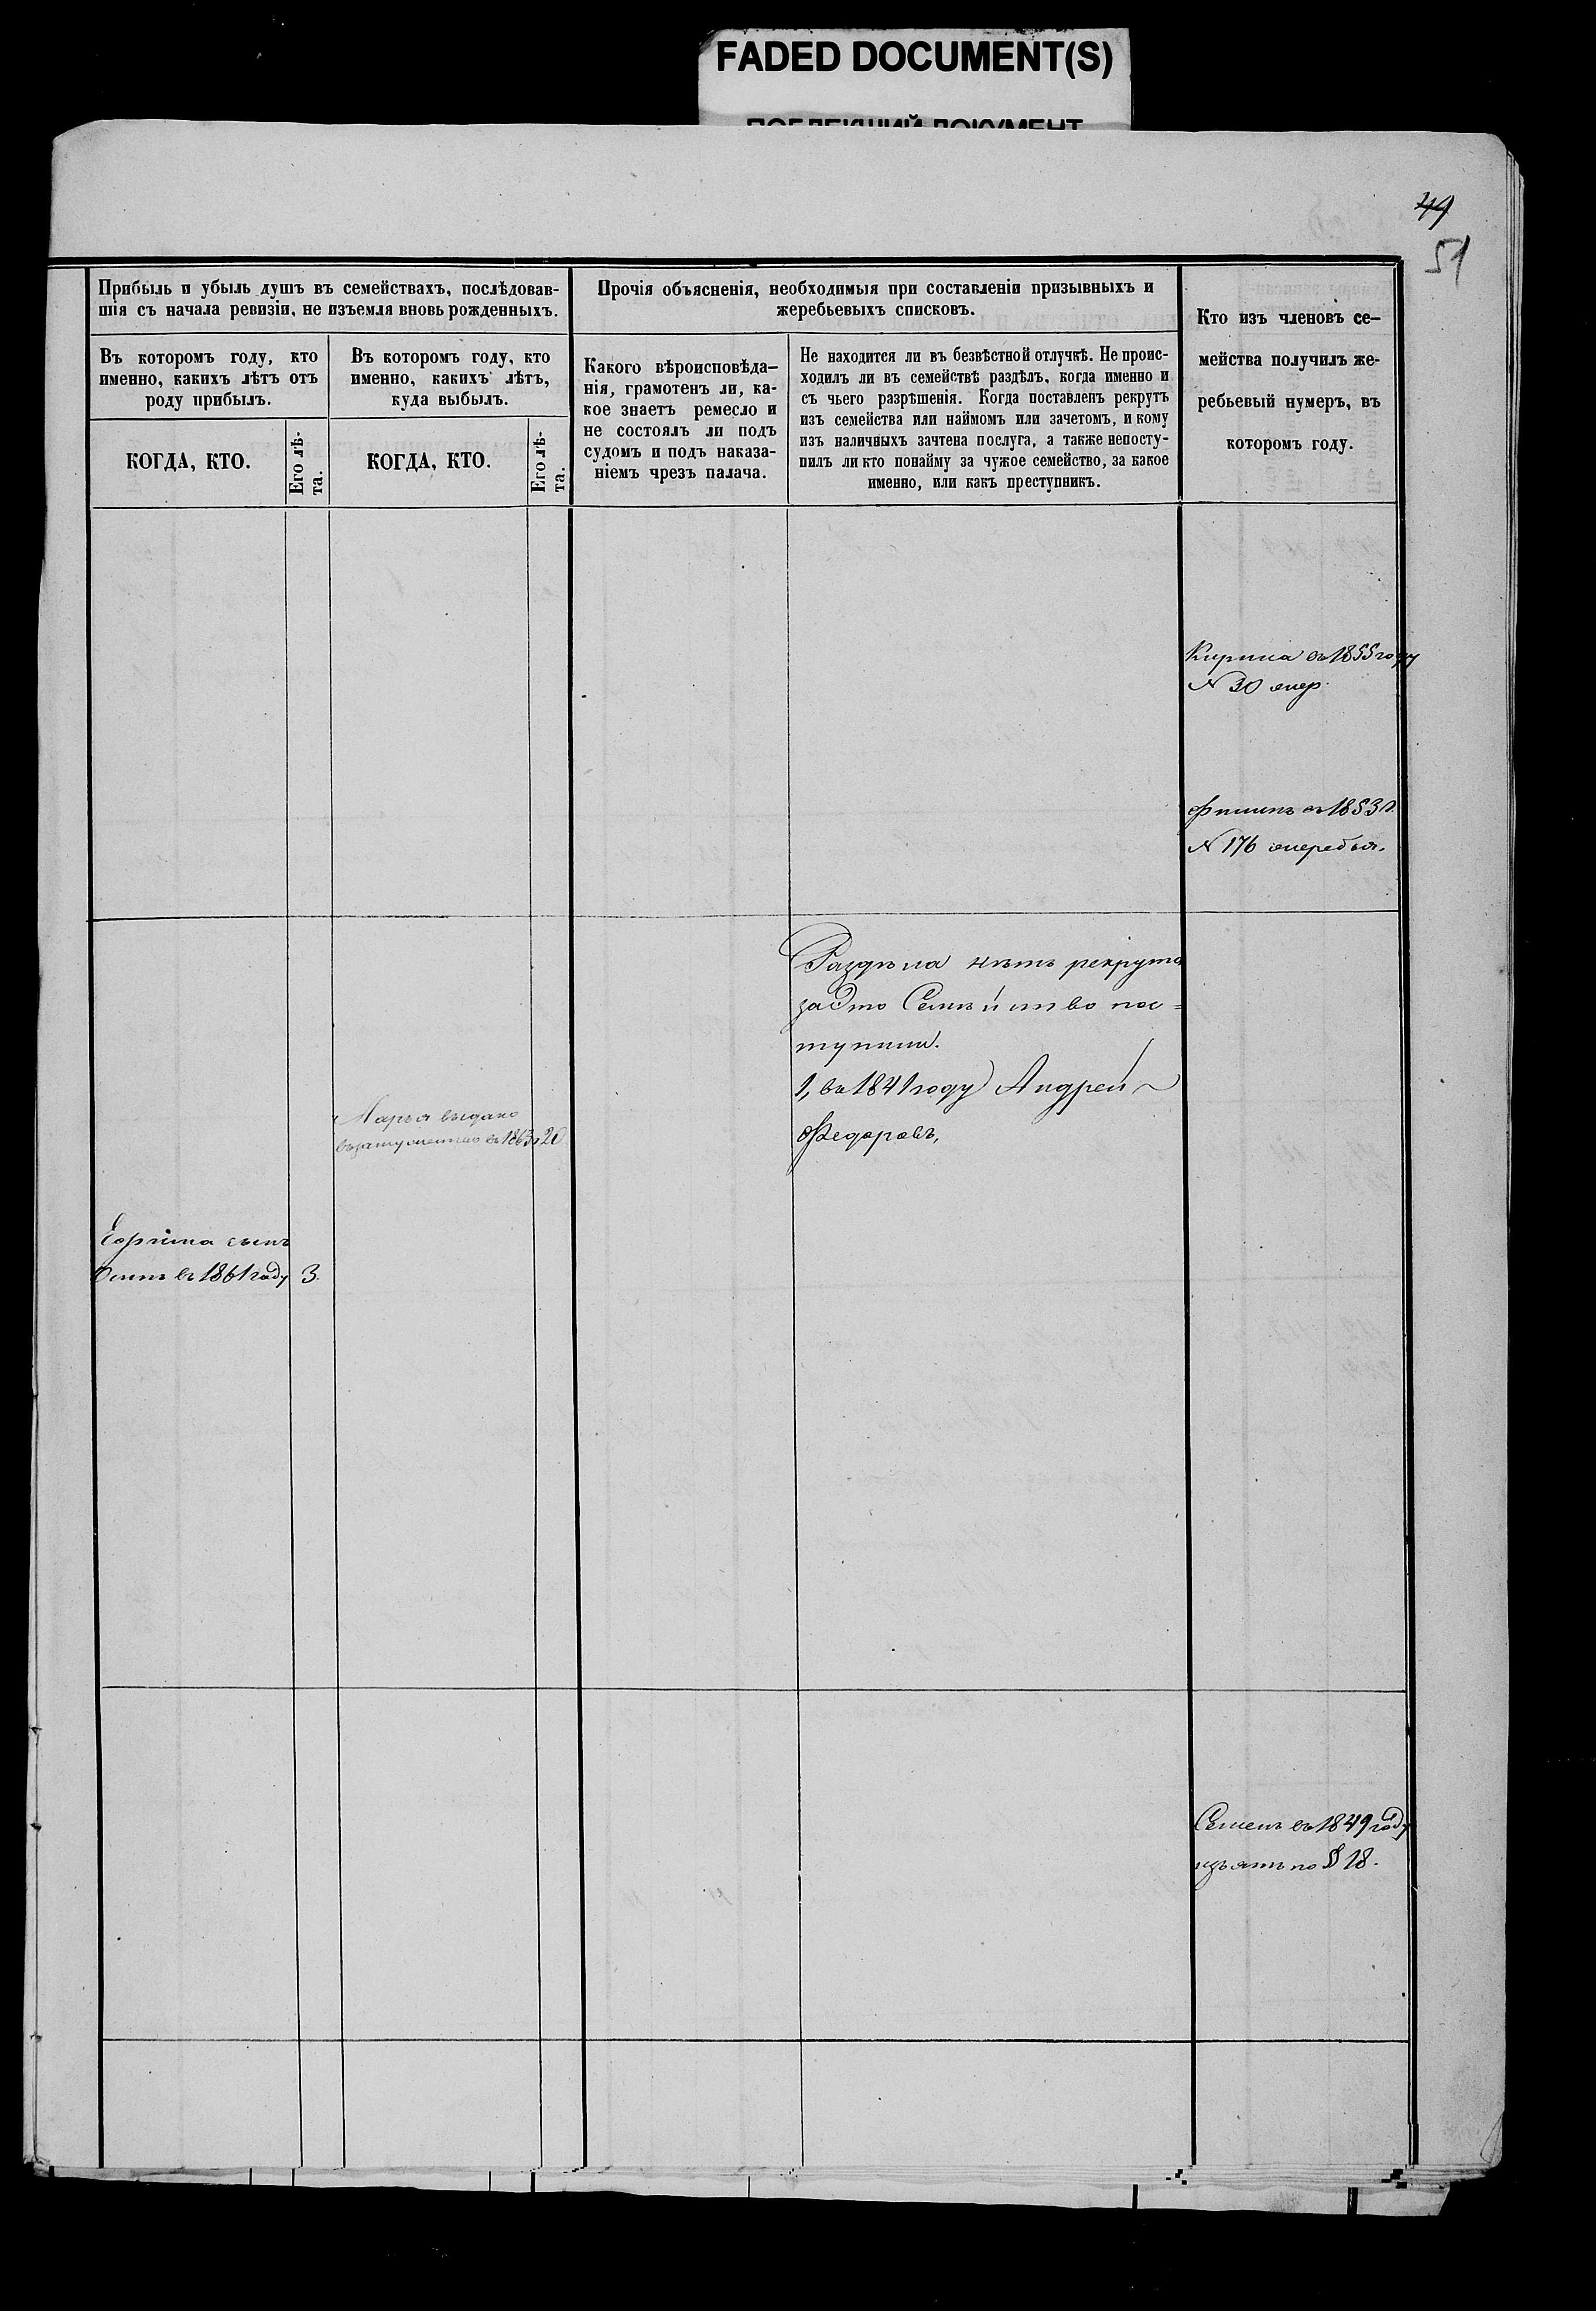 FADED DOCUMENT(S)
ПОБЛЕКШИЙ ДОКУМЕНТ
49
51
Прибыль и убыль душъ въ семействахъ, послѣдовав-
шія съ начала ревизіи, не изъемля вновь рожденныхъ.
Въ которомъ году, кто
именно, какихъ лѣтъ отъ
роду прибылъ.
КОГДА, КТО.
Его лѣ-
та.
Въ которомъ году, кто
именно, какихъ лѣтъ,
куда выбылъ.
КОГДА, КТО.
Его лѣ-
та.
Прочія объясненія, необходимыя при составленіи призывныхъ и
жеребьевыхъ списковъ.
Какого вѣроисповѣда-
нія, грамотенъ ли, ка-
кое знаетъ ремесло и
не состоялъ ли подъ
судомъ и подъ наказа-
ніемъ чрезъ палача.
Не находится ли въ безвѣстной отлучкѣ. Не проис-
ходилъ ли въ семействѣ раздѣлъ, когда именно и
съ чьего разрѣшенія. Когда поставленъ рекрутъ
изъ семейства или наймомъ или зачетомъ, и кому
изъ наличныхъ зачтена послуга, а также непосту-
пилъ ли кто понайму за чужое семейство, за какое
именно, или какъ преступникъ.
Кто изъ членовъ се-
мейства получилъ же-
ребьевый нумеръ, въ
которомъ году.
Кирила въ 1855 году
N 30 жер.
Филипъ въ 1853 г.
N 176 жеребья.
Раздѣла нѣтъ рекрута
за Это Семѣйство пос=
тупили.
1, въ 1841 году Андрей
Федоровъ,
Марья выдана
въ замужество въ 1863 г. 20
Ефрима сынъ
въ 1861 году 3.
Семенъ въ 1849 году
изъятъ по § 18.